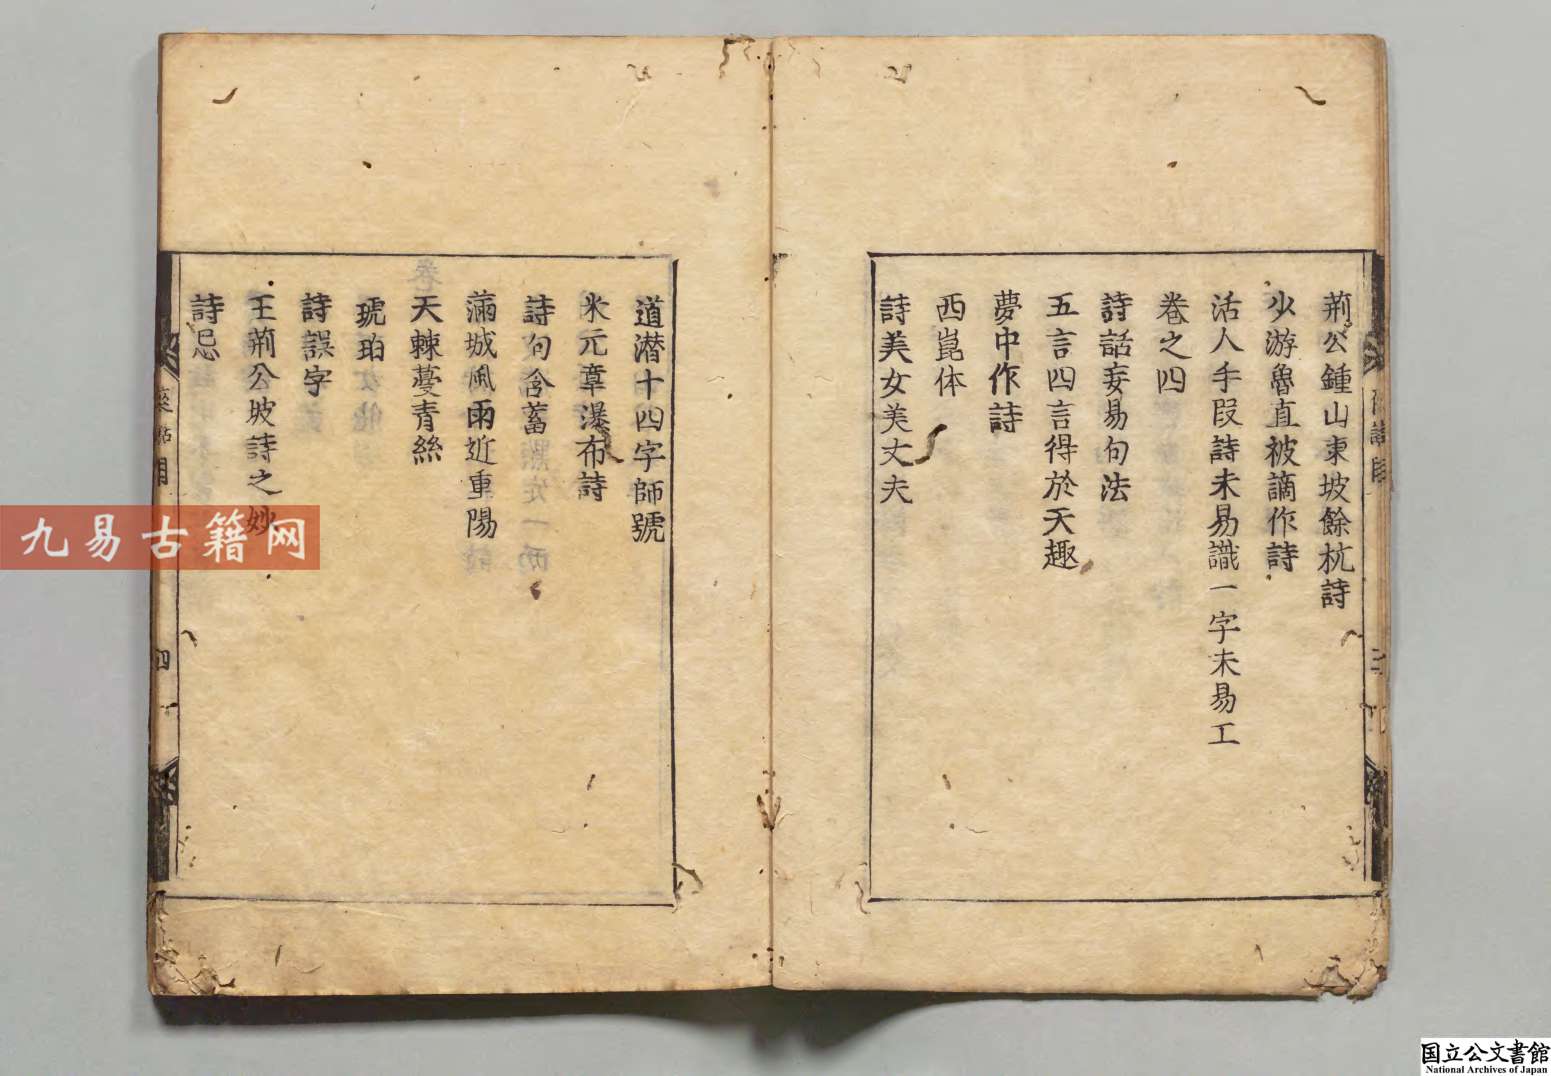 荊公鍾山東坡餘杭詩
少游魯直被謫作詩
活人手段詩未易識一字未易工
卷之四
詩話妄易句法
五言四言得於天趣
夢中作詩
西崑体
詩美女美丈夫
道潜十四字師號
米元章瀑布詩
詩句含蓄
滿城風雨近重陽
天棘蔓青絲
琥珀
詩誤字
王荊公坡詩之妙
詩忌
四
九易古籍网
国立公文書館
National Archives of Japan